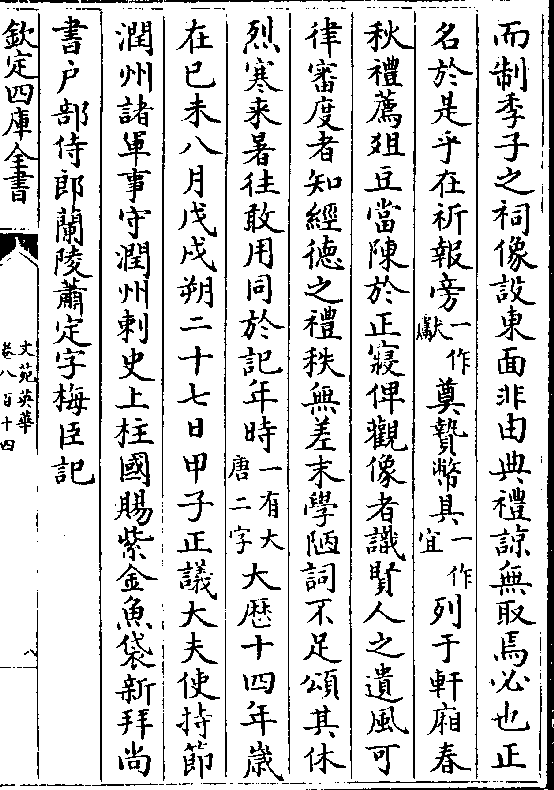 而制季子之祠像設東面非由典禮諒無取焉必也正
名於是乎在祈報旁一作獻奠贄幣具一作宜列于軒廂春
秋禮薦爼豆當陳於正寢俾觀像者識賢人之遺風可
律審度者知經德之禮秩無差末學陋詞不足頌其休
烈寒来暑往敢用同於記年時一有大唐二字大歴十四年歳
在已未八月戊戌朔二十七日甲子正議大夫使持節
潤州諸軍事守潤州刺史上柱國賜紫金魚袋新拜尚
書户部侍郎蘭陵蕭定字梅臣記
欽定四庫全書
文苑英華
卷八百十四
八